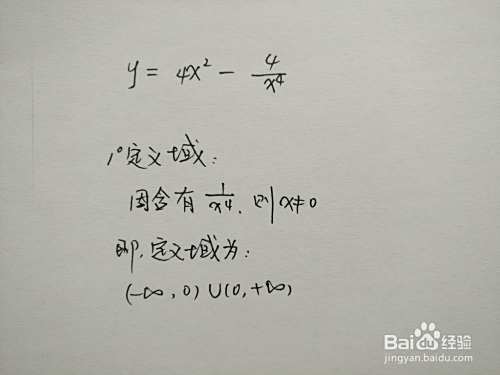 y = 4x² - 4/x⁴
1°定义域:
因含有 1/x⁴, 则x≠0
即,定义域为:
(-∞,0)∪(0,+∞)
Bai度经验
jingyan.baidu.com